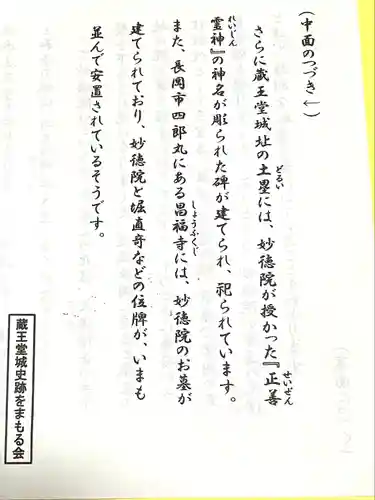 (中面のつづき←)
さらに蔵王堂城址の土塁には、妙徳院が授かった『正善
霊神』の神名が彫られた碑が建てられ、祀られています。
また、長岡市四郎丸にある昌福寺には、妙徳院のお墓が
建てられており、妙徳院と堀直竒などの位牌が、いまも
並んで安置されているそうです。
どるい
せいぜん
れいじん
しょうふくじ
蔵王堂城史跡をまもる会